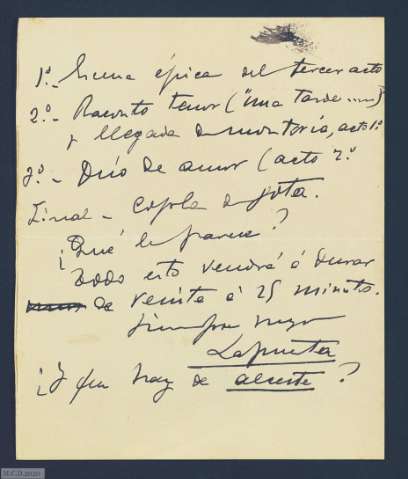 1º.- Escena épica del tercer acto
2º.- Raconto tenor ("Una tarde....")
y llegada de montoria, acto 1º
3º.- Dúo de amor (acto 2º
Final - Copla de jota.
¿Qué le parece?
Todo esto vendrá á durar
de veinte á 25 minutos.
Siempre suyo
Lapuerta
¿Y que hay de alceste?